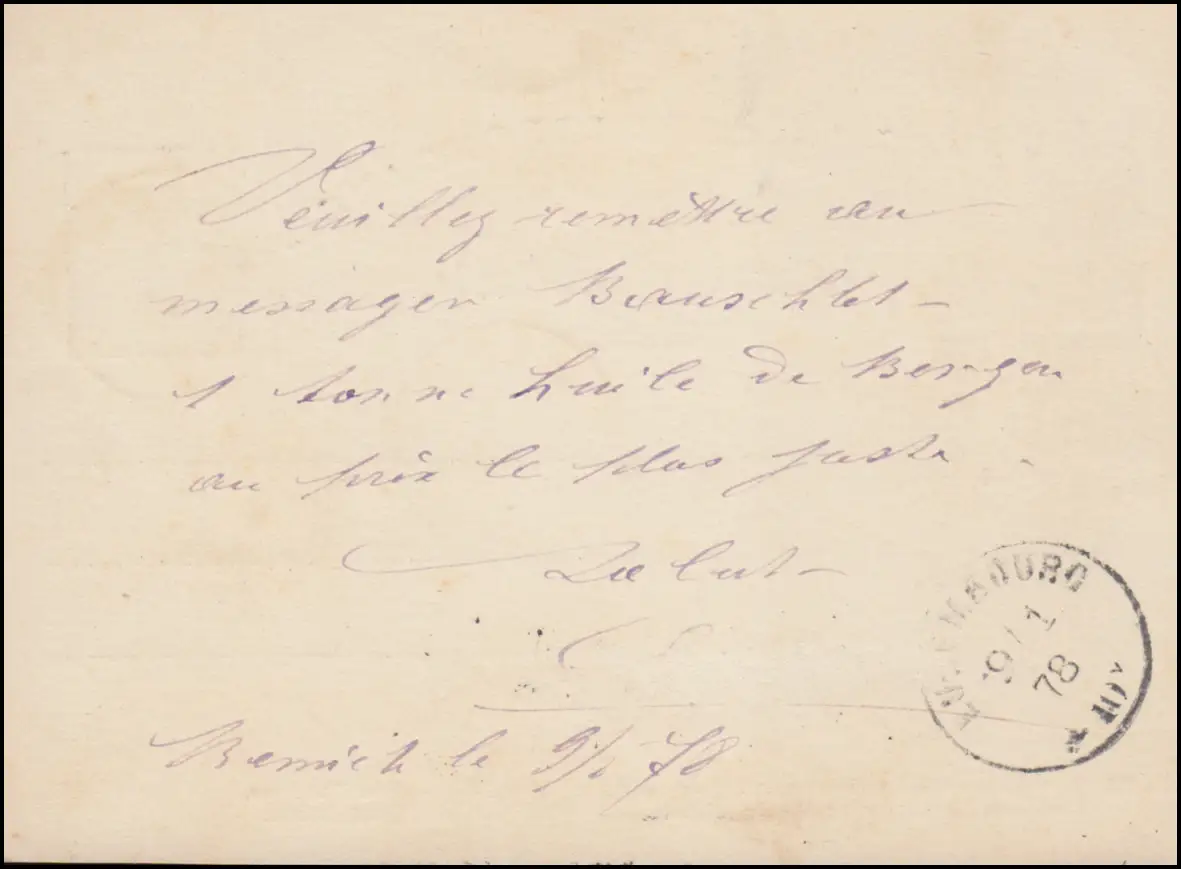 Veuillez remettre au
messager Bauschlet
1 tonne huile de Bergen
au prix le plus juste.
Salut
Remich le 9/1 78
LUXEMBOURG
9/1
78